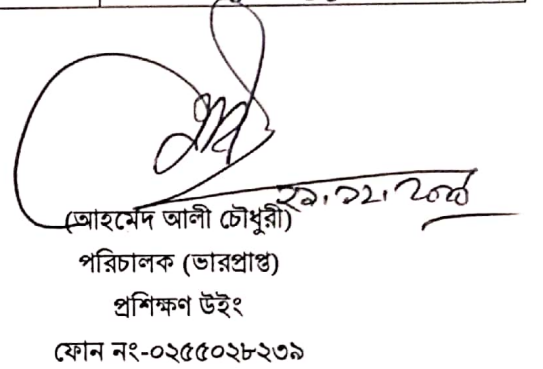 (আহমেদ আলী চৌধুরী)
পরিচালক (ভারপ্রাপ্ত)
প্রশিক্ষণ উইং
ফোন নং-০২৫৫০২৮২৩৯